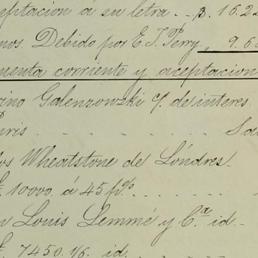 eptacion a su letra - $. 16.23
nos. Debido por E. J. Perry, 9.63
menta corriente y aceptacion
rino Galenzowski c/. de interes
res
os Wheatstone de Lóndres.
£. 10000. á 45 p%
n Louis Lemmé y Cª id.
£. 7450.1/6. id.